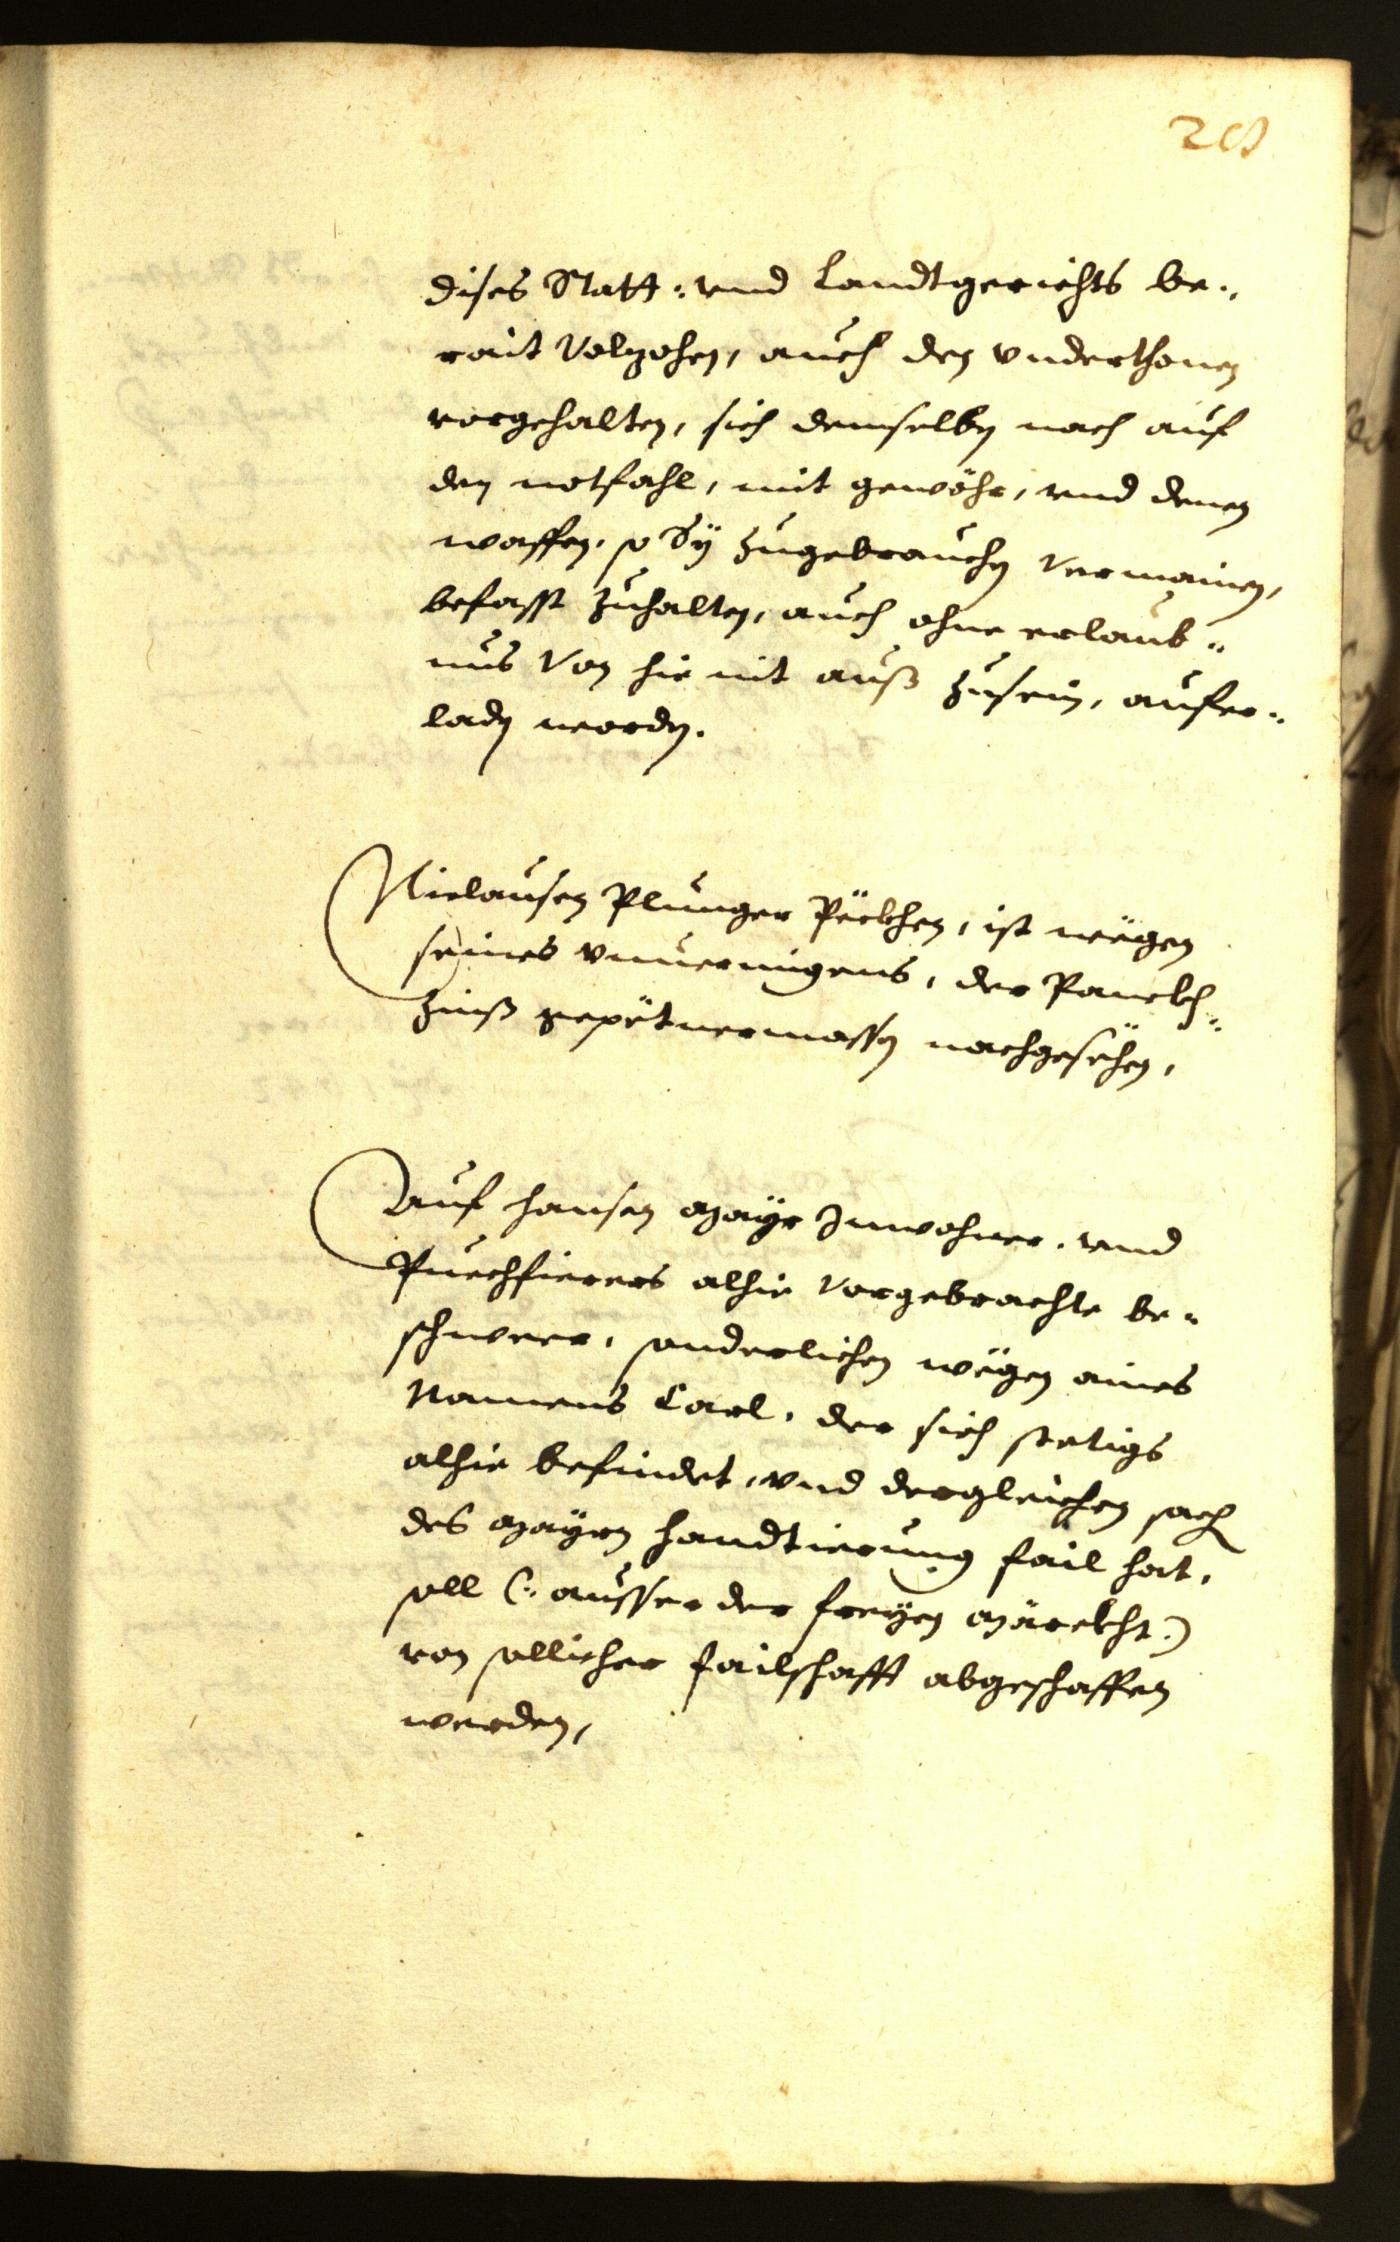 dises Statt: vnd Landtgerichts be¬
rait Volzohen, auch den vnderthonen
vorgehalten, sich demselben nach auf
den notfahl, mit gewöhr, vnd denen
waffen, so Sÿ zugebrauchen Vermainen,
befasst zuhalten, auch ohne erlaub¬
nus Von hie nit auß zusein, aufer¬
laden worden.
Niclausen Plunger Pöckhen, ist wegen
seines vnuermigens, der Panckh¬
zinß gepëtnermassen nachgesëhen,
Auf Hansen Mayr Inwohner, vnd
Puechfierers alhie Vorgebrachte be¬
schwerr, sonderlichen wëgen aines
Namens Carl, der sich stetigs
alhie befindet, vnd dergleichen sachen
des Mayrn handtierung fail hat,
soll (: ausser der freyen Märckht:)
von sollicher failschafft abgeschaffen
werden,